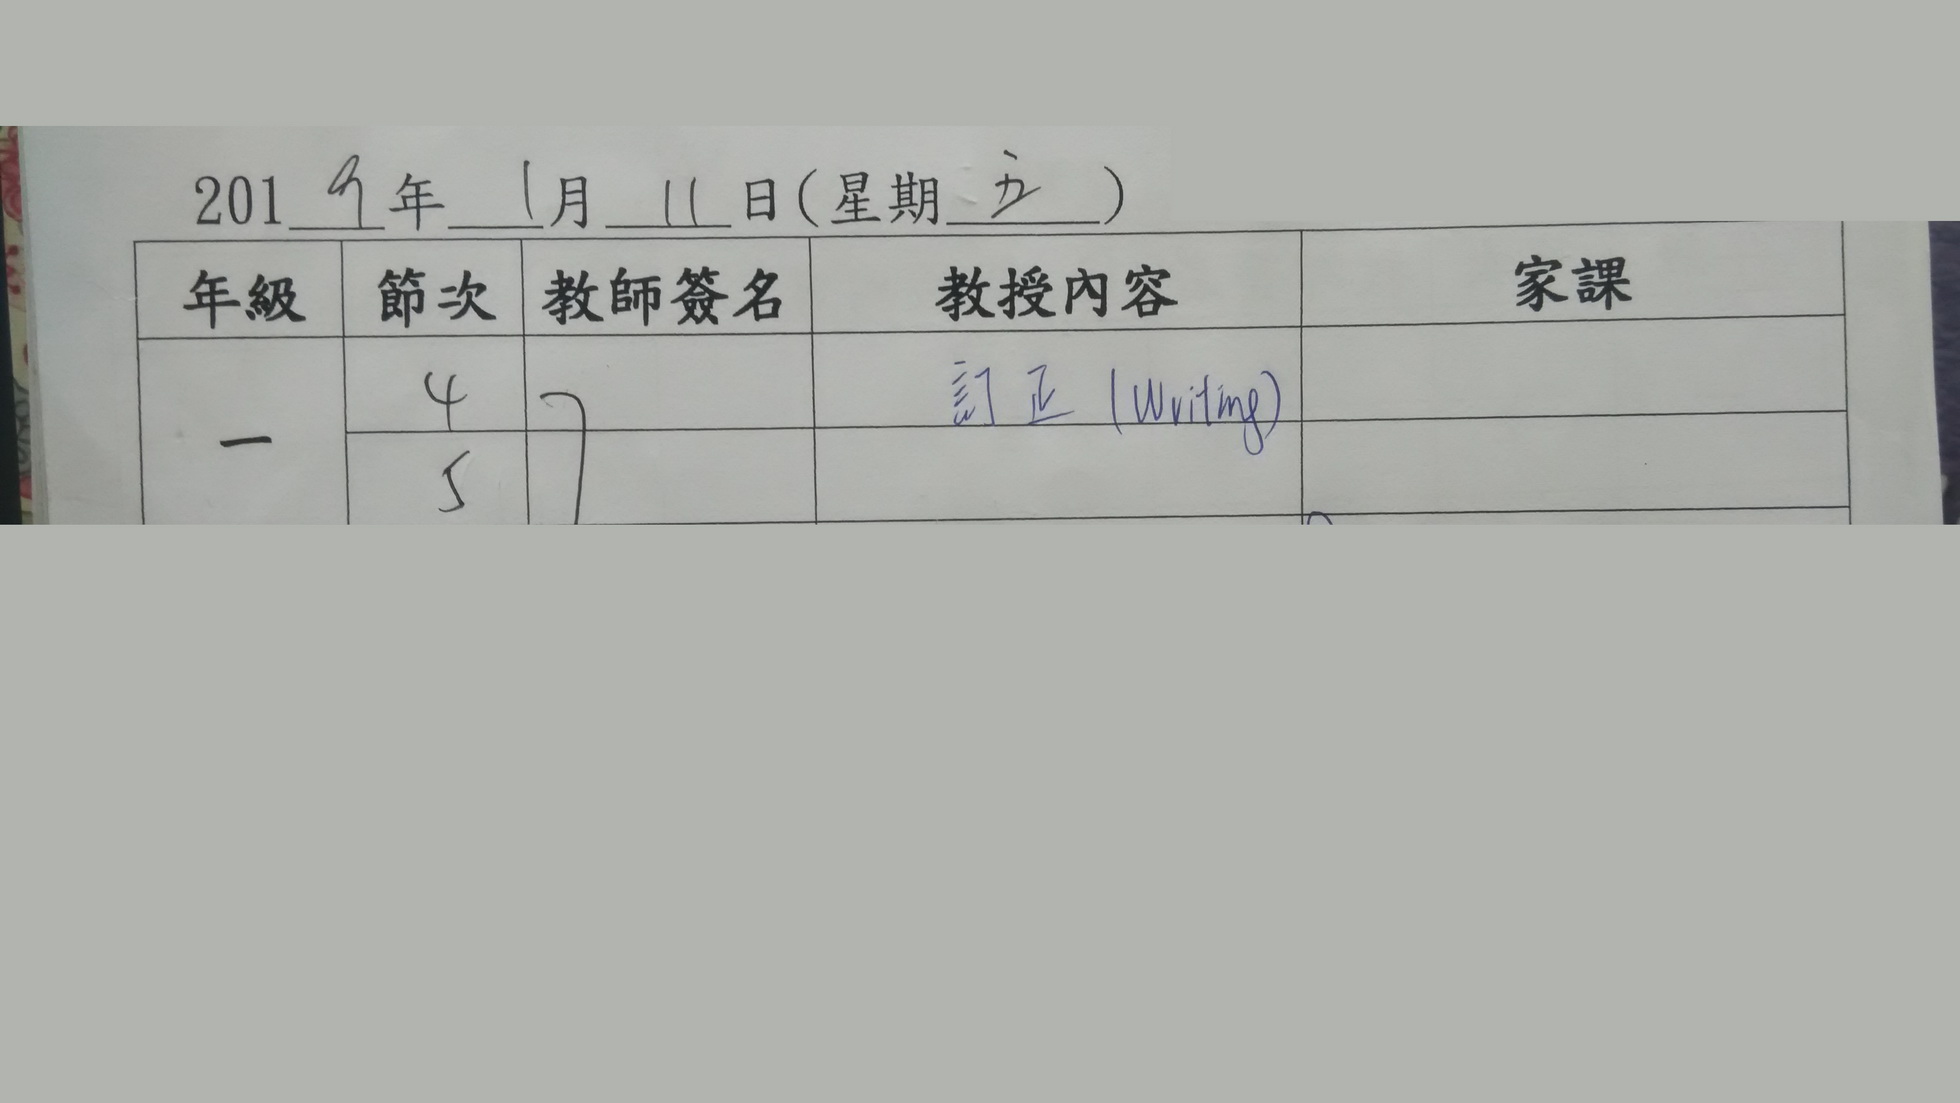 2019年1月11日(星期五)
年級 節次 教師簽名 教授內容 家課
一 4 訂正 (Writing)
5